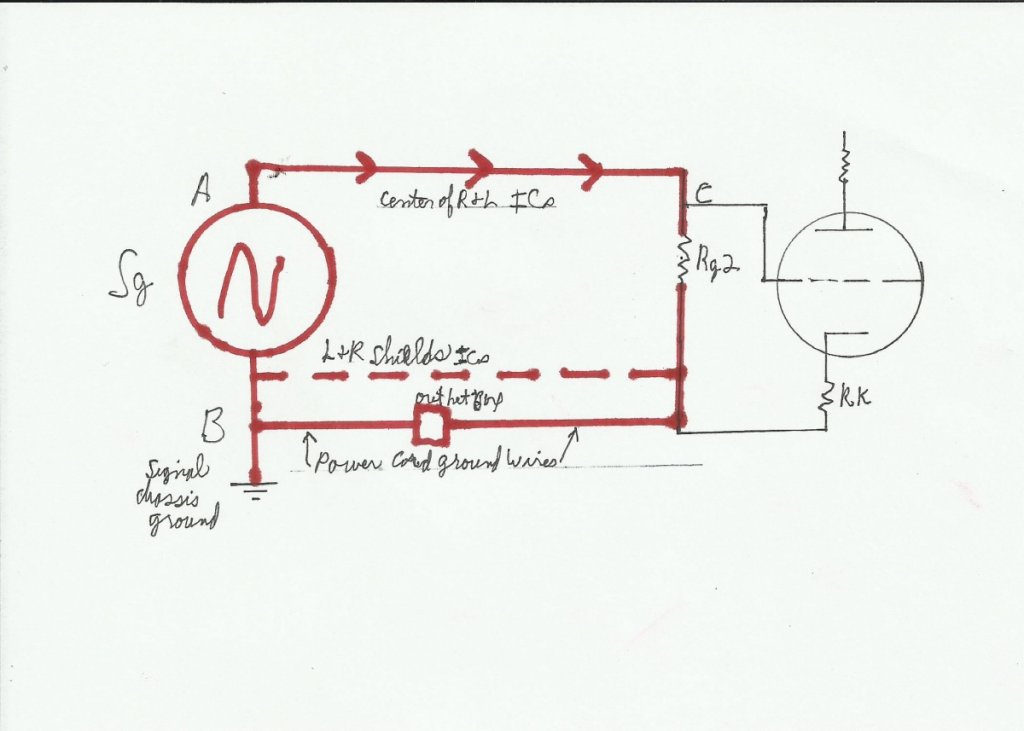 A
center of R+L ICs
C
Sg
Rg2
L+R shields ICs
outlet Box
RK
B
Power Cord ground wires
Signal
chassis
ground